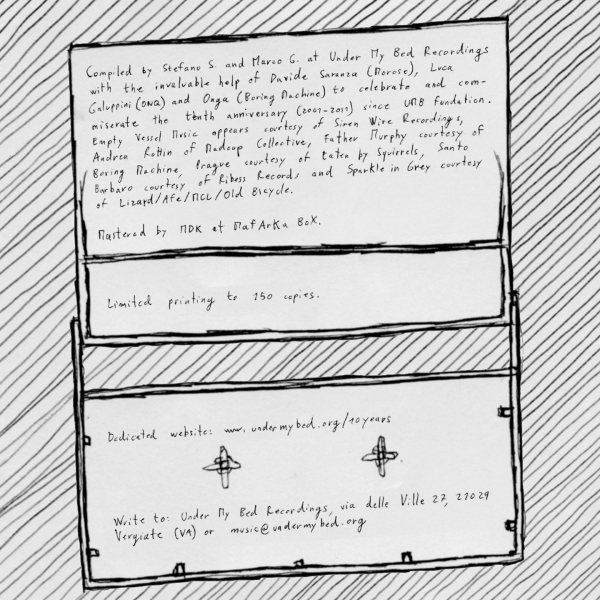 Compiled by Stefano S. and Marco G. at Under My Bed Recordings
with the invaluable help of Davide Saranza (Morose), Luca
Galuppini (ONQ) and Onga (Boring Machine) to celebrate and com-
miserate the tenth anniversary (2001-2011) since UMB fondation.
Empty Vessel Music appears courtesy of Siren Wire Recordings,
Andrea Rottin of Madcup Collective, Father Murphy courtesy of
Boring Machine, Prague courtesy of Eaten by Squirrels, Santo
Barbaro courtesy of Ribess Records and Sparkle in Grey courtesy
of Lizard/Afe/MCL/Old Bicycle.
Mastered by MDK at MafArKa BoX.
Limited printing to 150 copies.
Dedicated website: www.undermybed.org/10years
Write to: Under My Bed Recordings, via delle Ville 27, 21029
Vergiate (VA) or music@undermybed.org